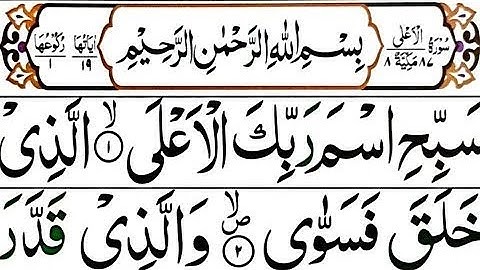 سُوْرَةُ الْاَعْلٰى ٨٧ مَكِّيَّةٌ ٨ بِسْمِ اللّٰهِ الرَّحْمٰنِ الرَّحِيْمِ اٰيَاتُهَا ١٩ رُكُوْعُهَا ١
سَبِّحِ اسْمَ رَبِّكَ الْاَعْلَى ۙ‏ ١ الَّذِىْ
خَلَقَ فَسَوّٰى ۙ ص ٢ وَالَّذِىْ قَدَّرَ